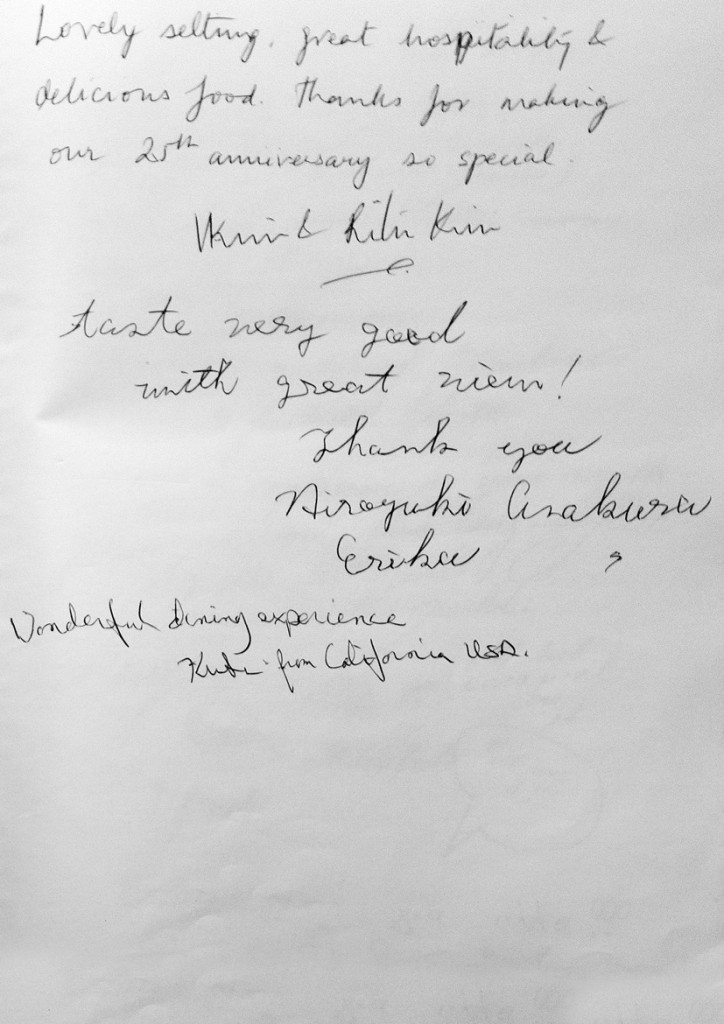 Lovely setting, great hospitality &
delicious food. Thanks for making
our 25th anniversary so special.
&
taste very good
with great view!
Thank you
Hiroyuki Asakura
Erika
Wonderful dining experience
from California USA.